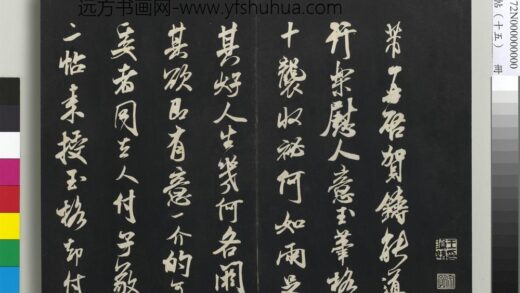 远方书画网-www.yfshuhua.com
芾再啓賀鑄能道
行樂慰人意玉筆格
十襲收祕何如兩
其好人生幾何各闕
其欲即有意一介的
吳者同去人付子敬
二帖來授玉格却付
72N000000000
帖（十五） 册